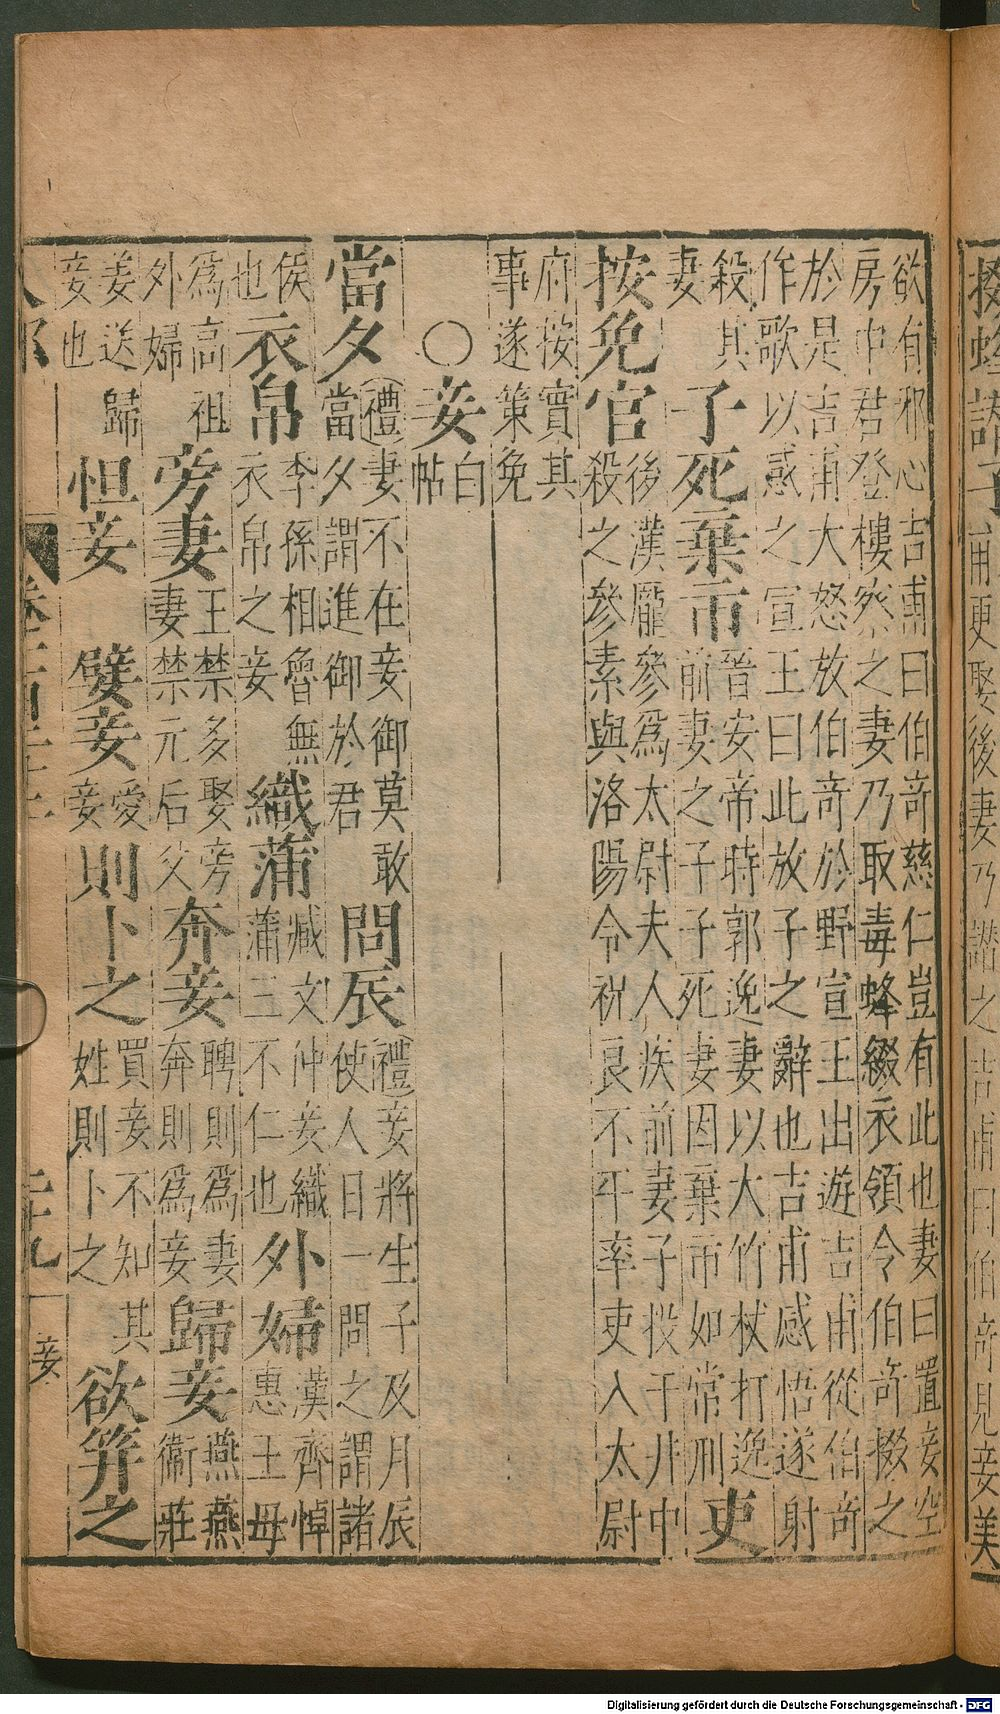 掇蜂譖子甫更娶後妻乃譖之吉甫曰伯奇見妾美
欲有邪心吉甫曰伯奇慈仁豈有此也妻曰置妾空
房中君登樓然之妻乃取毒蜂綴衣領令伯奇掇之
於是吉甫大怒放伯奇於野宣王出遊吉甫從伯奇
作歌以感之宣王曰此放子之辭也吉甫感悟遂射
殺其
妻
子死棄市
晉安帝時郭逸妻以大竹杖打逸
前妻之子子死妻因棄市如常刑
吏
按免官
後漢龐參爲太尉夫人疾前妻子投于井中
殺之參素與洛陽令祝良不平率吏入太尉
府按實其
事遂策免
○妾
白
帖
當夕
禮妻不在妾御莫敢
當夕謂進御於君
問辰
禮妾將生子及月辰
使人日一問之謂諸
侯
也
衣帛
季孫相魯無
衣帛之妾
織蒲
臧文仲妾織
蒲三不仁也
外婦
漢齊悼
惠王母
爲高祖
外婦
旁妻
王禁多娶旁
妻禁元后父
奔妾
聘則爲妻
奔則爲妾
歸妾
燕燕
衞莊
姜送歸
妾也
怛妾
嬖妾
愛
妾
則卜之
買妾不知其
姓則卜之
欲笄之
二十九
妾
Digitalisierung gefördert durch die Deutsche Forschungsgemeinschaft - DFG